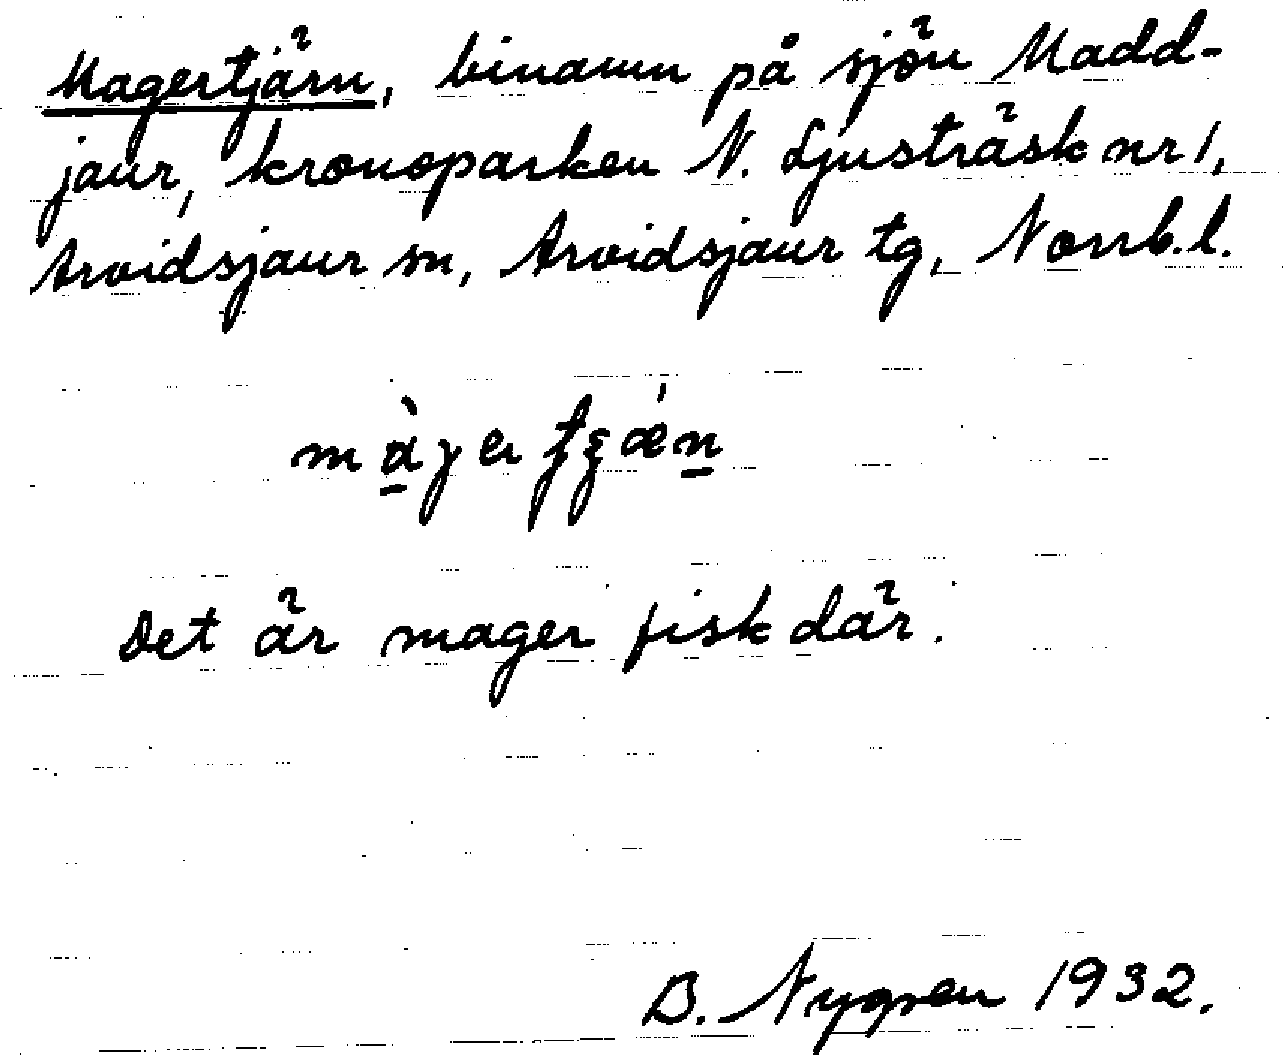 Magertjärn, binamn på sjön Madd-
jaur, kronoparken N. Ljusträsk nr 1,
Arvidsjaur sn, Arvidsjaur tg, Norrb.l.
Det är mager fisk där.
B. Nygren 1932.